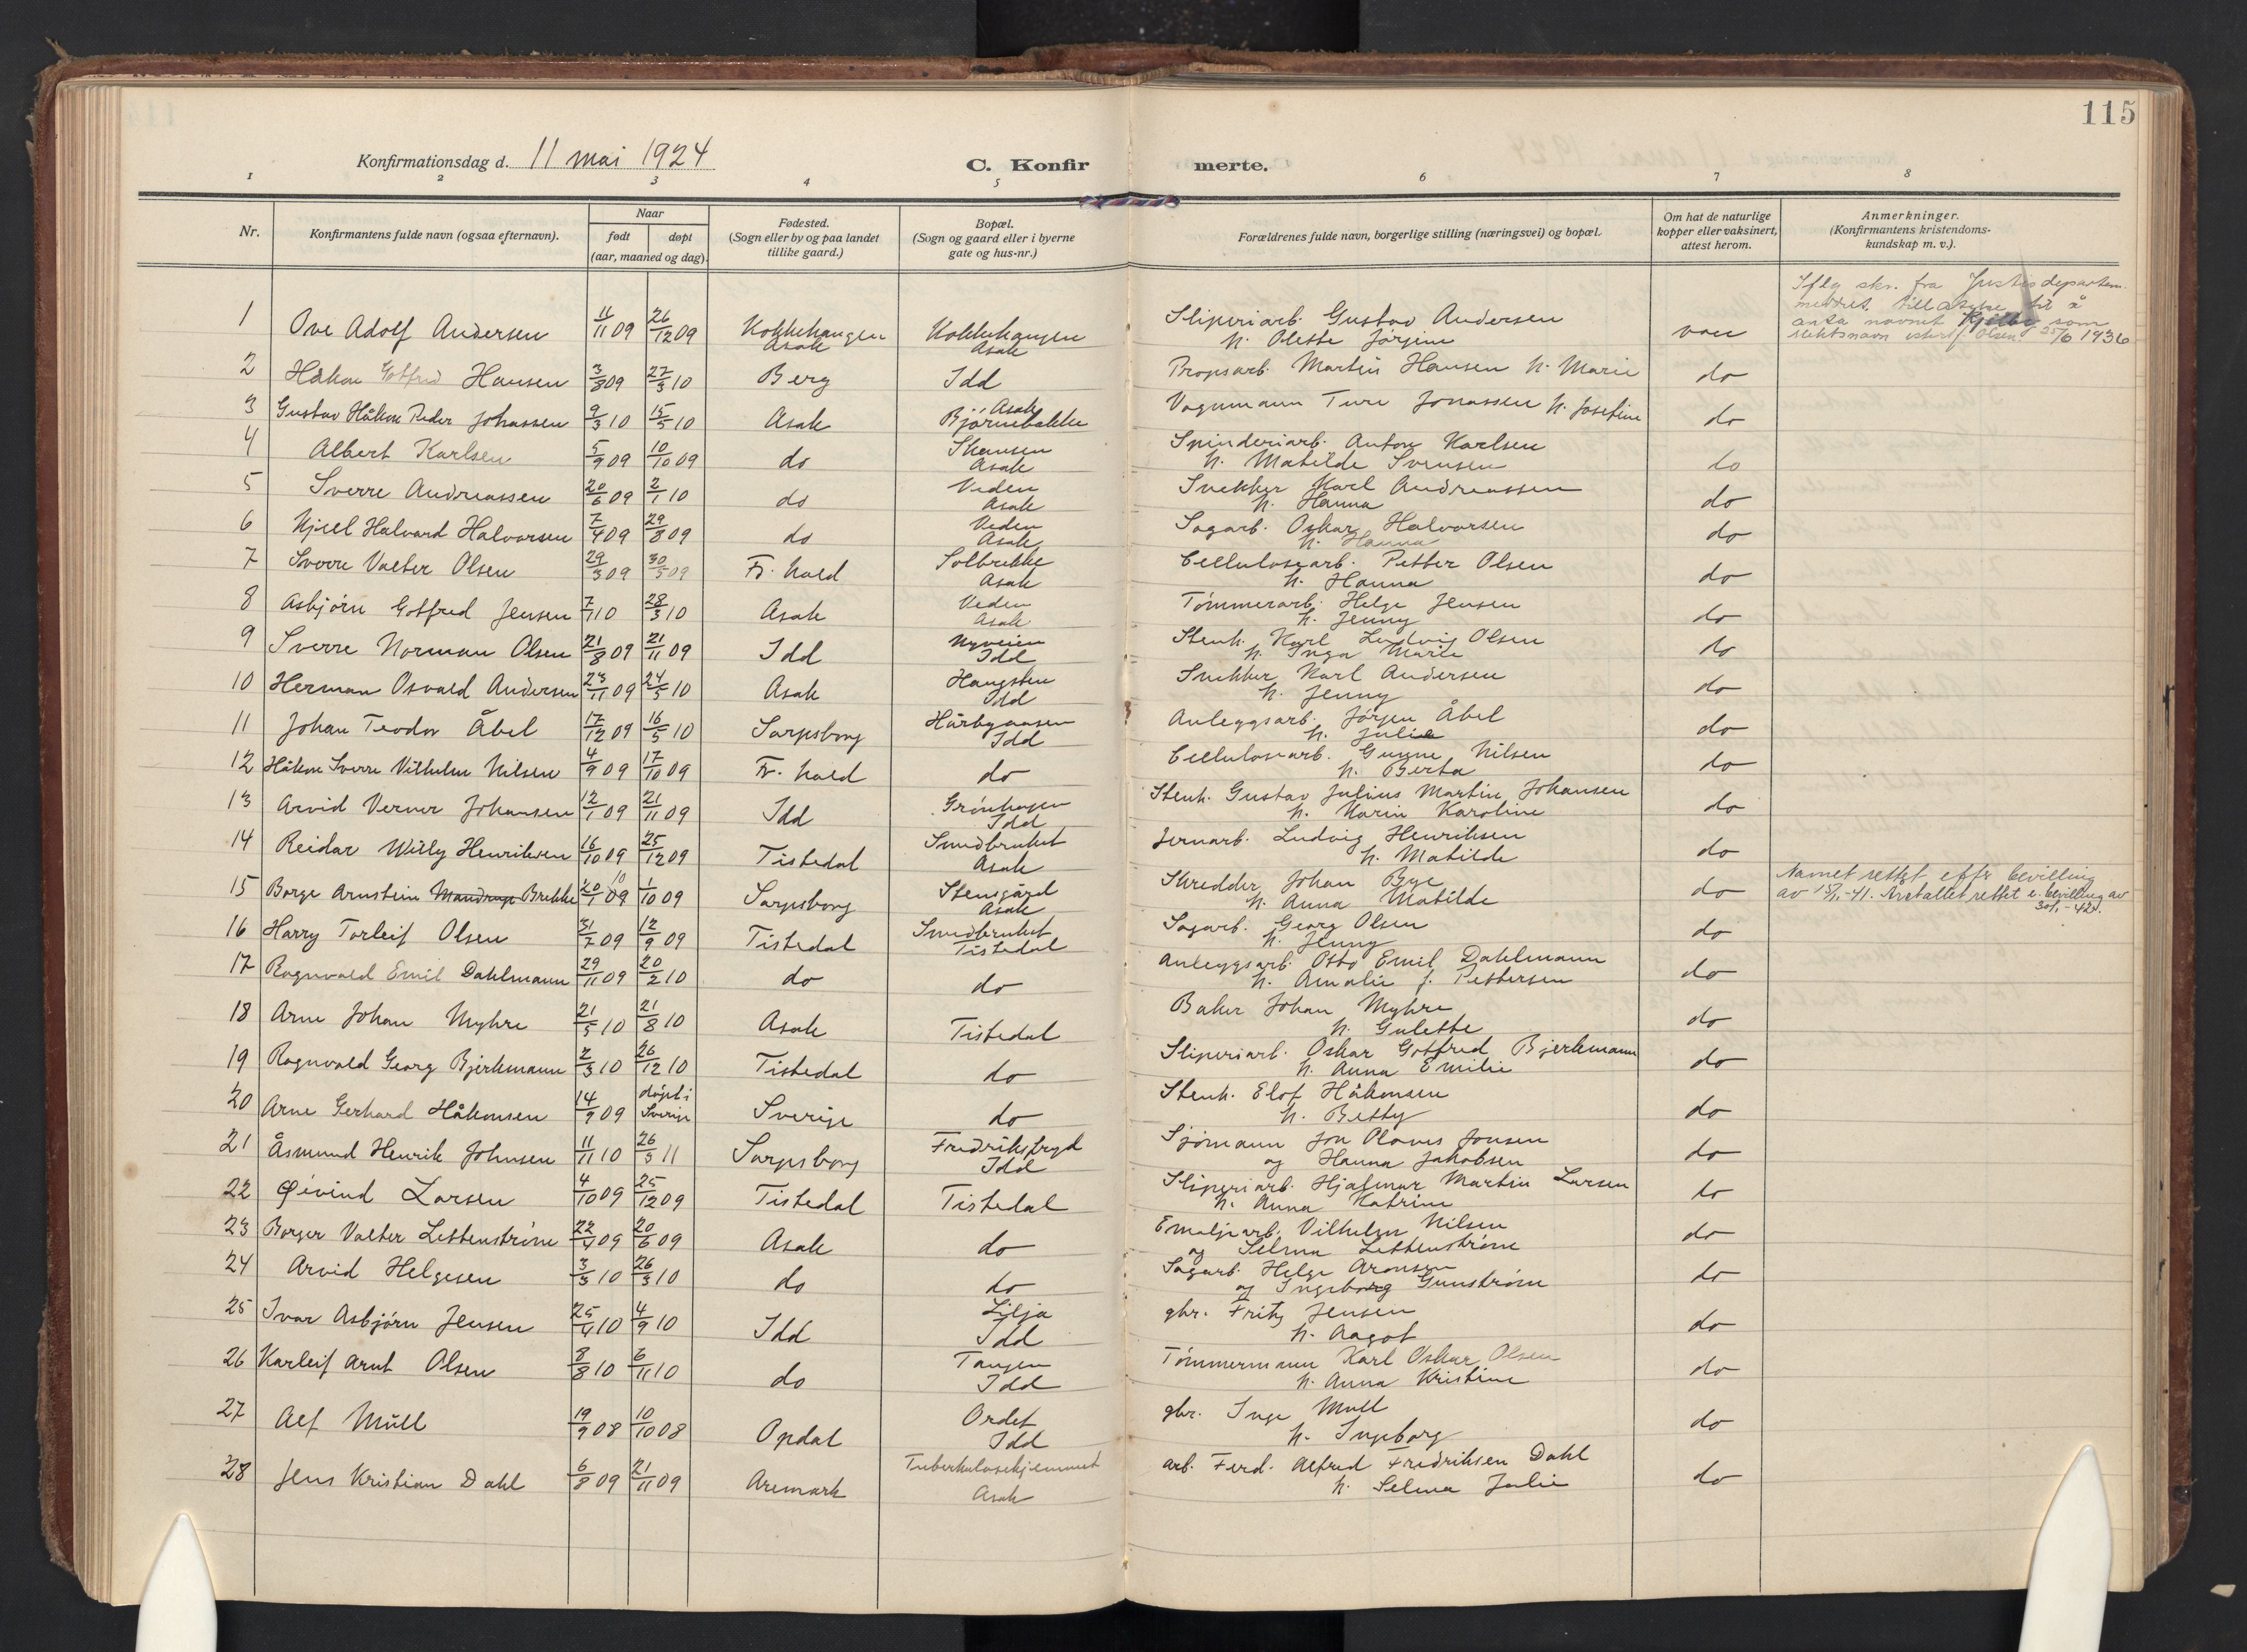 115
Konfirmationsdag d. 11 mai 1924
C. Konfirmerte.
1 2 3 4 5 6 7 8
Nr.
Konfirmantens fulde navn (ogsaa efternavn).
Naar
født
døpt
(aar, maaned og dag).
Fødested.
(Sogn eller by og paa landet
tillike gaard.)
Bopæl.
(Sogn og gaard eller i byerne
gate og hus-nr.)
Forældrenes fulde navn, borgerlige stilling (næringsvei) og bopæl.
Om hat de naturlige
kopper eller vaksinert,
attest herom.
Anmerkninger.
(Konfirmantens kristendoms-
kundskap m. v.).
1 Ove Adolf Andersen 11/11 09 26/12 09 Kokkehaugen Asak Kokkehaugen Asak Sliperiarb. Gustav Andersen h. Olette Jørgine vac
Iflg skr. fra Justisdepartem.
2 Håkon Gotfred Hansen 3/8 09 27/3 10 Berg Idd Propsarb. Martin Hansen h. Marie do
3 Gustav Håkon Peder Johnssen 9/3 10 15/5 10 Asak Asak Bjørnebakke Vognmann Ture Jonassen h. Josefine do
4 Albert Karlsen 5/9 09 10/10 09 do Skansen Asak Spinderiarb. Anton Karlsen h. Matilde Svensen do
5 Sverre Andreassen 20/6 09 2/1 10 do Veden Asak Snekker Karl Andreassen h. Hanna do
6 Kjell Halvard Halvorsen 7/4 09 29/8 09 do Veden Asak Sagarb. Oskar Halvorsen h. Hanna do
7 Sverre Valter Olsen 29/3 09 30/5 09 Fr. hald Solbrekke Asak Cellulosearb. Petter Olsen h. Hanna do
8 Asbjørn Gotfred Jensen 7/1 10 28/3 10 Asak Veden Asak Tømmerarb. Helge Jensen h. Jenny do
9 Sverre Norman Olsen 21/8 09 21/11 09 Idd Nyveien Idd Stenh. Karl Ludvig Olsen h. Inga Marie do
10 Herman Osvald Andersen 23/11 09 24/5 10 Asak Haugsten Idd Snekker Karl Andersen h. Jenny do
11 Johan Teodor Åbel 17/12 09 16/5 10 Sarpsborg Hårbyaasen Idd Anleggsarb. Jørgen Åbel h. Julie do
12 Håkon Sverre Vilhelm Nilsen 4/9 09 17/10 09 Fr. hald do Cellulosearb. Gunne Nilsen h. Berta do
13 Arvid Verner Johansen 12/1 09 21/11 09 Idd Grønhagen Idd Stenh. Gustav Julius Martin Johansen h. Karin Karoline do
14 Reidar Willy Henriksen 16/10 09 25/12 09 Tistedal Smedbruket Asak Jernarb. Ludvig Henriksen h. Matilde do
15 Borge Arnstein Mandrup Brekke 20/1 09 10 1/10 09 Sarpsborg Stensgård Asak Skredder Johan Bye h. Anna Matilde do
Navnet rettet efter bevilling
av 15/1-41. Årstallet rettet e. bevilling av
30/1-42.
16 Harry Torleif Olsen 31/7 09 12/9 09 Tistedal Smedbruket Tistedal Sagarb. Georg Olsen h. Jenny do
17 Ragnvald Emil Dahlmann 29/11 09 20/2 10 do do Anleggsarb. Otto Emil Dahlmann h. Amalie f. Pettersen do
18 Arne Johan Myhre 21/5 10 21/8 10 Asak Tistedal Baker Johan Myhre h. Gulette do
19 Ragnvald Georg Bjerkmann 2/3 10 26/12 10 Tistedal do Sliperiarb. Oskar Gotfred Bjerkmann h. Anna Emilie do
20 Arne Gerhard Håkonsen 14/9 09 døpt i Sverige Sverige do Stenh. Elof Håkonsen h. Betty do
21 Åsmund Henrik Johnsen 11/11 10 26/3 11 Sarpsborg Fredriksfryd Idd Sjømann Jon Olaves Jonsen og Hanna Jakobsen do
22 Øivind Larsen 4/10 09 25/12 09 Tistedal Tistedal Sliperiarb. Hjalmar Martin Larsen h. Anna Katrine do
23 Borger Valter Lettenstrøm 22/4 09 20/6 09 Asak do Emaljearb. Vilhelm Nilsen og Selma Lettenstrøm do
24 Arvid Helgesen 3/3 10 26/3 10 do do Sagarb. Helge Aronsen og Ingeborg Gunstrøm do
25 Ivar Asbjørn Jensen 25/4 10 4/9 10 Idd Lilja Idd gbr. Fritz Jensen h. Aagot do
26 Karleif Arnt Olsen 8/8 10 6/11 10 do Tangen Idd Tømmermann Karl Oskar Olsen h. Anna Kristine do
27 Alf Müll 19/9 08 10/10 08 Opdal Ordet Idd gbr. Inge Müll h. Ingeborg do
28 Jens Kristian Dahl 6/8 09 21/11 09 Aremark Tuberkulosehjemmet Asak arb. Ferd. Alfred Fredriksen Dahl h. Selma Julie do